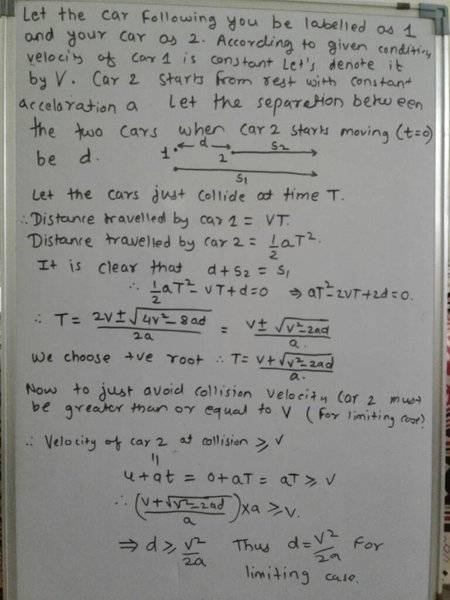 Let the car following you be labelled as 1
and your car as 2. According to given condition,
velocity of car 1 is constant Let's denote it
by V. Car 2 starts from rest with constant
acceleration a Let the separation between
the two cars when car 2 starts moving (t=0)
be d. 1 d 2 s₂
s₁
Let the cars just collide at time T.
∴ Distance travelled by car 1 = VT.
Distance travelled by car 2 = 1/2 aT².
It is clear that d+s₂ = s₁
∴ 1/2 aT² - VT+d=0 ⇒ aT²-2VT+2d=0.
∴ T = (2V±√(4V²-8ad))/2a = (V±√(V²-2ad))/a.
We choose +ve root ∴ T = (V+√(V²-2ad))/a.
Now to just avoid collision velocity car 2 must
be greater than or equal to V (for limiting case)
∴ Velocity of car 2 at collision ≥ V
||
u+at = 0+aT = aT ≥ V
∴ ((V+√(V²-2ad))/a)×a ≥ V.
⇒ d ≥ V²/2a Thus d = V²/2a for
limiting case.